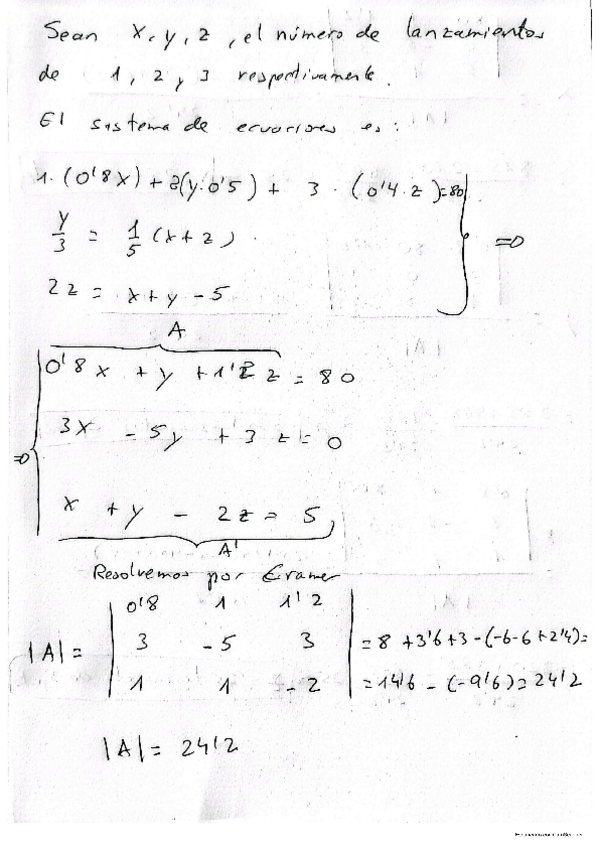 Sean x, y, z, el número de lanzamientos
de 1, 2 y 3 respectivamente.
El sistema de ecuaciones es:
1·(0'8x) + 2(y·0'5) + 3·(0'4·z)=80
y/3 = 1/5 (x+z)
2z = x+y-5
=>
A
0'8x + y + 1'2z = 80
3x - 5y + 3z = 0
=>
x + y - 2z = 5
A'
Resolvemos por Cramer
|A| = | 0'8 1 1'2 |
| 3 -5 3 | = 8 + 3'6 + 3 - (-6 - 6 + 2'4) =
| 1 1 -2 | = 14'6 - (-9'6) = 24'2
|A| = 24'2